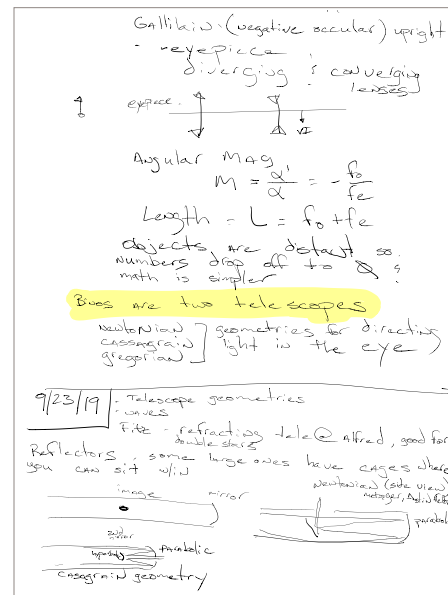 Gallilain: (negative occular) upright
- eyepiece
diverging & converging
lenses
eyepiece.
VI
Angular Mag
M = α'/α = - fo/fe
Length = L = fo + fe
objects are distant so
numbers drop off to ∞ &
math is simpler
Binos are two telescopes
Newtonian
Cassagrain
gregorian
] geometries for directing
light in the eye
9/23/19
- Telescope geometries
- waves
Fitz - refracting tele @ Alfred, good for
double stars
Reflectors, some large ones have cages where
you can sit w/in
Newtonian (side view)
image
mirror
parabol
2nd
mirror
parabolic
Casagrain geometry